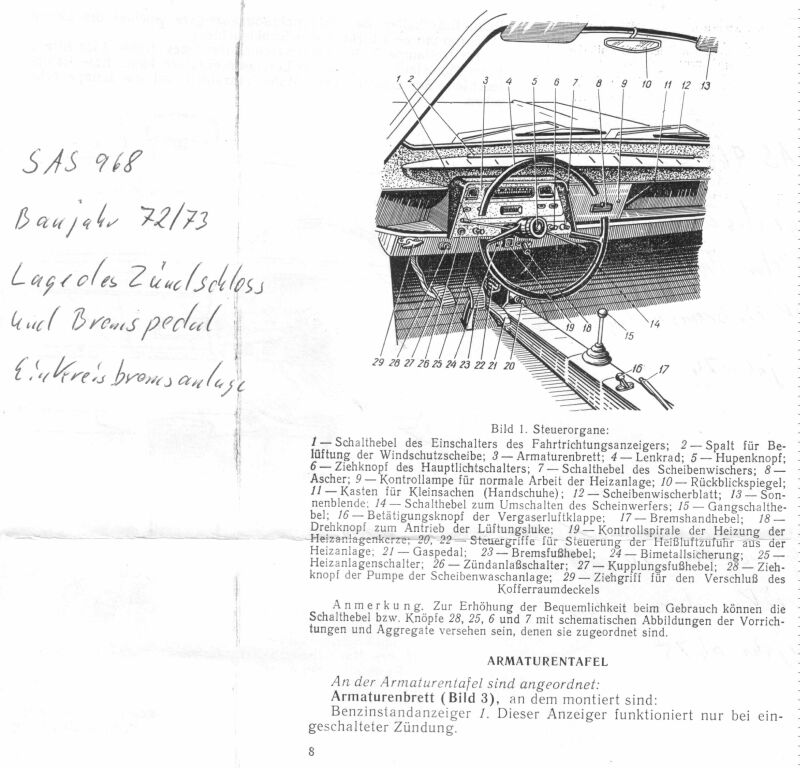 SAS 968
Baujahr 72/73
Lage des Zündschloss
und Bremspedal
Einkreisbremsanlage
1 2 3 4 5 6 7 8 9 10 11 12 13
14
15
16 17
18
19
29 28 27 26 25 24 23 22 21 20
Bild 1. Steuerorgane:
1 — Schalthebel des Einschalters des Fahrtrichtungsanzeigers; 2 — Spalt für Be-
lüftung der Windschutzscheibe; 3 — Armaturenbrett; 4 — Lenkrad; 5 — Hupenknopf;
6 — Ziehknopf des Hauptlichtschalters; 7 — Schalthebel des Scheibenwischers; 8 —
Ascher; 9 — Kontrollampe für normale Arbeit der Heizanlage; 10 — Rückblickspiegel;
11 — Kasten für Kleinsachen (Handschuhe); 12 — Scheibenwischerblatt; 13 — Son-
nenblende; 14 — Schalthebel zum Umschalten des Scheinwerfers; 15 — Gangschalthe-
bel; 16 — Betätigungsknopf der Vergaserluftklappe; 17 — Bremshandhebel; 18 —
Drehknopf zum Antrieb der Lüftungsluke; 19 — Kontrollspirale der Heizung der
Heizanlagenkerze; 20, 22 — Steuergriffe für Steuerung der Heißluftzufuhr aus der
Heizanlage; 21 — Gaspedal; 23 — Bremsfußhebel; 24 — Bimetallsicherung; 25 —
Heizanlagenschalter; 26 — Zündanlaßschalter; 27 — Kupplungsfußhebel; 28 — Zieh-
knopf der Pumpe der Scheibenwaschanlage; 29 — Ziehgriff für den Verschluß des
Kofferraumdeckels
Anmerkung. Zur Erhöhung der Bequemlichkeit beim Gebrauch können die
Schalthebel bzw. Knöpfe 28, 25, 6 und 7 mit schematischen Abbildungen der Vorrich-
tungen und Aggregate versehen sein, denen sie zugeordnet sind.
ARMATURENTAFEL
An der Armaturentafel sind angeordnet:
Armaturenbrett (Bild 3), an dem montiert sind:
Benzinstandanzeiger 1. Dieser Anzeiger funktioniert nur bei ein-
geschalteter Zündung.
8